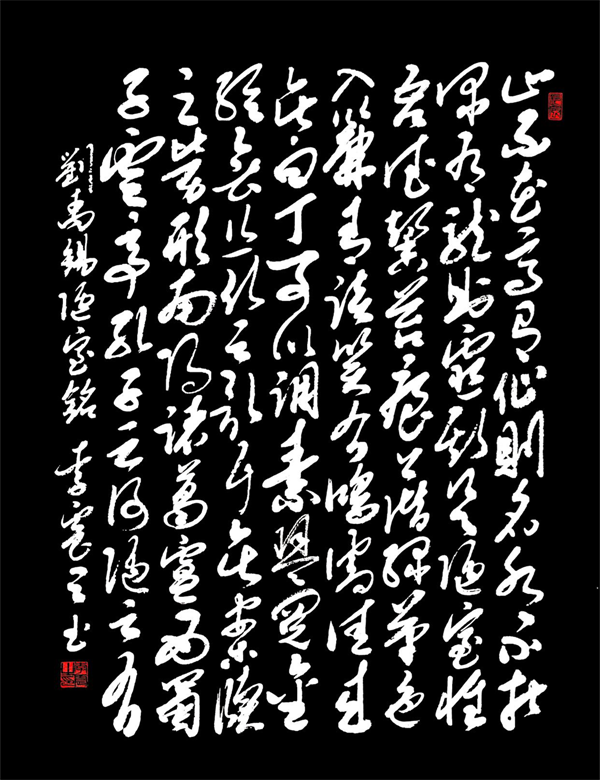 山不在高有仙則名水不在
深有龍則靈斯是陋室惟
吾德馨苔痕上階綠草色
入簾青談笑有鴻儒往來
無白丁可以調素琴閱金
經無絲竹之亂耳無案牘
之勞形南陽諸葛廬西蜀
子雲亭孔子云何陋之有
劉禹錫陋室銘 李震书